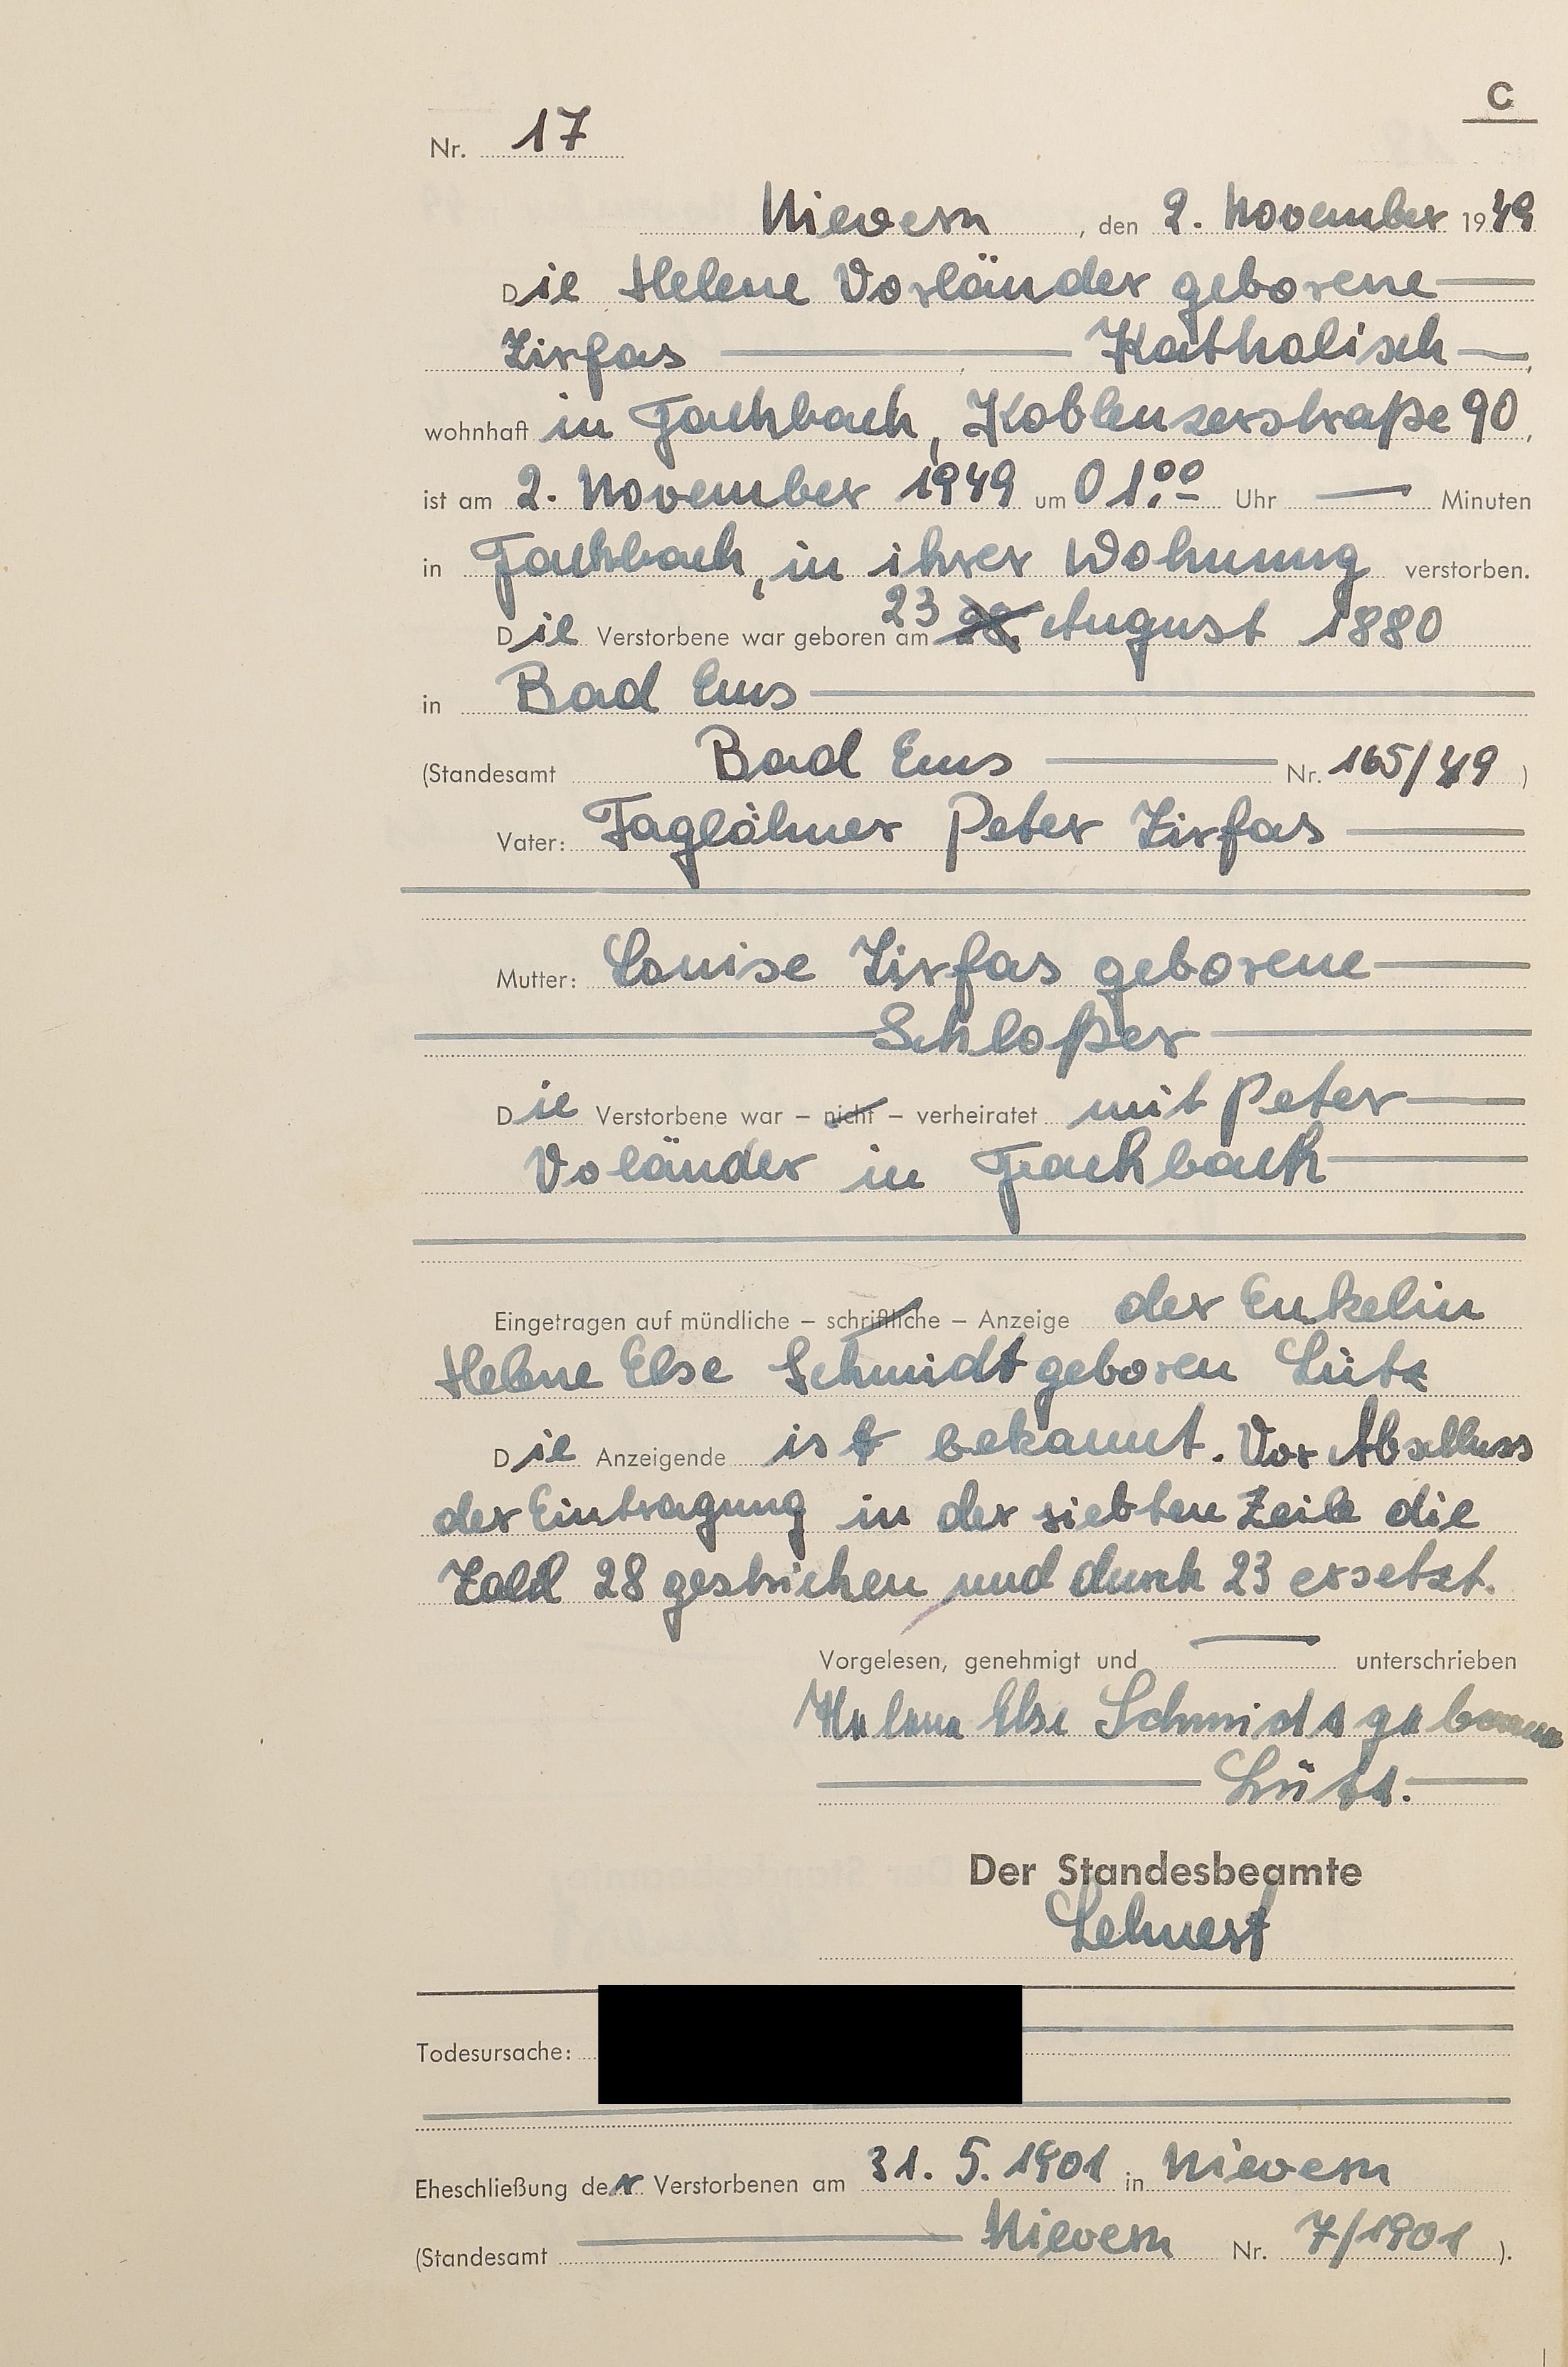 C
Nr. 17
Nievern, den 2. November 1949
Die Helene Vorländer geborene
Zirfas Katholisch,
wohnhaft in Fachbach, Koblenzerstraße 90,
ist am 2. November 1949 um 01.00 Uhr — Minuten
in Fachbach, in ihrer Wohnung verstorben.
Die Verstorbene war geboren am 23 28. August 1880
in Bad Ems
(Standesamt Bad Ems Nr. 165/49)
Vater: Taglöhner Peter Zirfas
Mutter: Louise Zirfas geborene
Schloßer
Die Verstorbene war – nicht – verheiratet mit Peter
Voländer in Fachbach
Eingetragen auf mündliche – schriftliche – Anzeige der Enkelin
Helene Else Schmidt geboren Lütz
Die Anzeigende ist bekannt. Vor Abschluss
der Eintragung in der siebten Zeile die
Zahl 28 gestrichen und durch 23 ersetzt.
Vorgelesen, genehmigt und — unterschrieben
Helene Else Schmidt geborene
Lütz.
Der Standesbeamte
Lehnert
Todesursache:
Eheschließung der Verstorbenen am 31. 5. 1901 in Nievern
(Standesamt Nievern Nr. 7/1901).